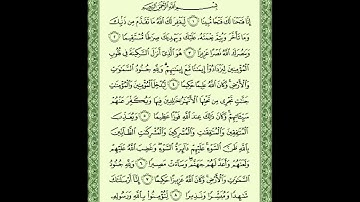 بِسْمِ ٱللَّهِ ٱلرَّحْمَٰنِ ٱلرَّحِيمِ
إِنَّا فَتَحْنَا لَكَ فَتْحًا مُّبِينًا ١ لِّيَغْفِرَ لَكَ ٱللَّهُ مَا تَقَدَّمَ مِن ذَنۢبِكَ
وَمَا تَأَخَّرَ وَيُتِمَّ نِعْمَتَهُۥ عَلَيْكَ وَيَهْدِيَكَ صِرَٰطًا مُّسْتَقِيمًا ٢
وَيَنصُرَكَ ٱللَّهُ نَصْرًا عَزِيزًا ٣ هُوَ ٱلَّذِىٓ أَنزَلَ ٱلسَّكِينَةَ فِى قُلُوبِ
ٱلْمُؤْمِنِينَ لِيَزْدَادُوٓا۟ إِيمَٰنًا مَّعَ إِيمَٰنِهِمْ وَلِلَّهِ جُنُودُ ٱلسَّمَٰوَٰتِ
وَٱلْأَرْضِ وَكَانَ ٱللَّهُ عَلِيمًا حَكِيمًا ٤ لِّيُدْخِلَ ٱلْمُؤْمِنِينَ وَٱلْمُؤْمِنَٰتِ
جَنَّٰتٍ تَجْرِى مِن تَحْتِهَا ٱلْأَنْهَٰرُ خَٰلِدِينَ فِيهَا وَيُكَفِّرَ عَنْهُمْ
سَيِّـَٔاتِهِمْ وَكَانَ ذَٰلِكَ عِندَ ٱللَّهِ فَوْزًا عَظِيمًا ٥ وَيُعَذِّبَ
ٱلْمُنَٰفِقِينَ وَٱلْمُنَٰفِقَٰتِ وَٱلْمُشْرِكِينَ وَٱلْمُشْرِكَٰتِ ٱلظَّآنِّينَ
بِٱللَّهِ ظَنَّ ٱلسَّوْءِ عَلَيْهِمْ دَآئِرَةُ ٱلسَّوْءِ وَغَضِبَ ٱللَّهُ عَلَيْهِمْ
وَلَعَنَهُمْ وَأَعَدَّ لَهُمْ جَهَنَّمَ وَسَآءَتْ مَصِيرًا ٦ وَلِلَّهِ جُنُودُ
ٱلسَّمَٰوَٰتِ وَٱلْأَرْضِ وَكَانَ ٱللَّهُ عَزِيزًا حَكِيمًا ٧ إِنَّآ أَرْسَلْنَٰكَ
شَٰهِدًا وَمُبَشِّرًا وَنَذِيرًا ٨ لِّتُؤْمِنُوا۟ بِٱللَّهِ وَرَسُولِهِۦ